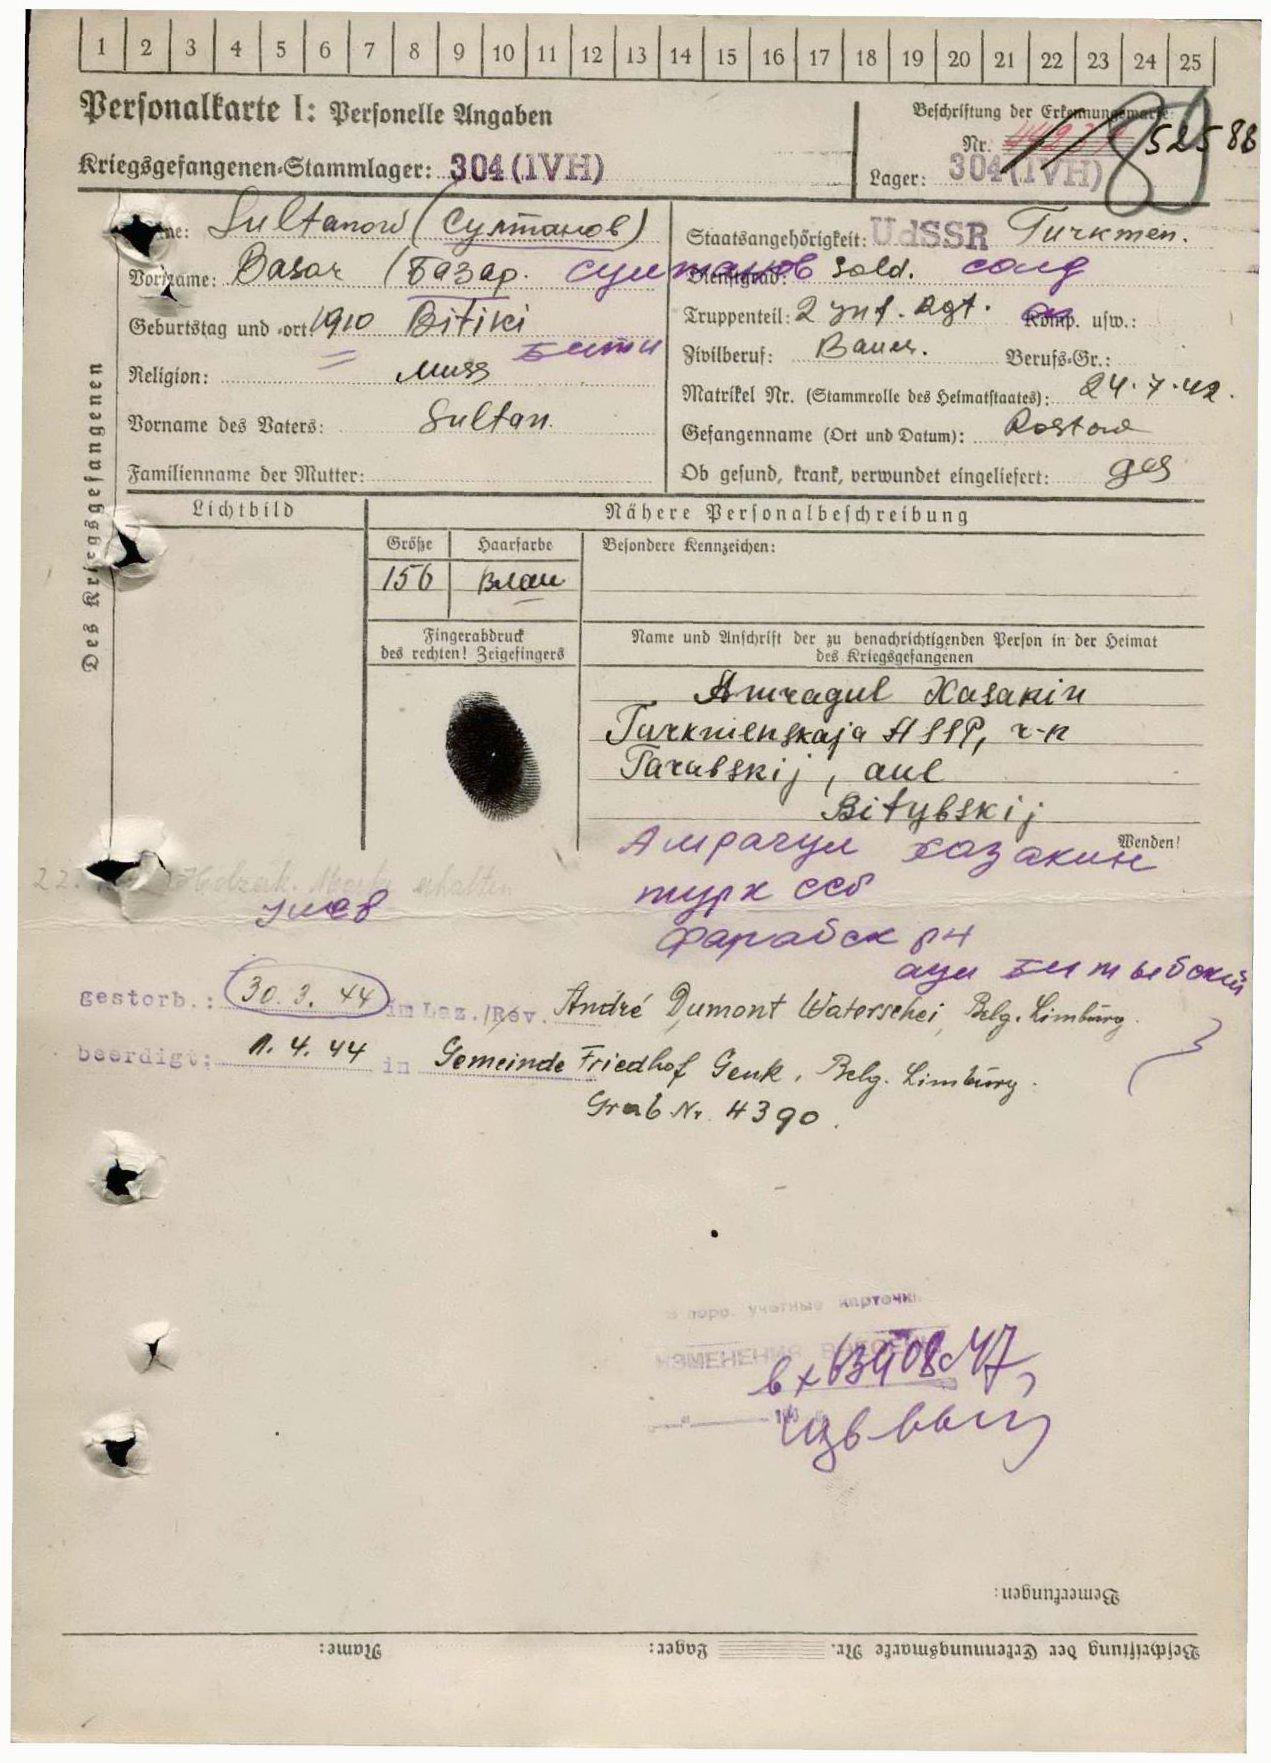 1 2 3 4 5 6 7 8 9 10 11 12 13 14 15 16 17 18 19 20 21 22 23 24 25
Personalkarte I: Personelle Angaben
Kriegsgefangenen-Stammlager: 304 (IVH)
Beschriftung der Erkennungsmarke
Nr. 52588
Lager: 304 (IVH)
Des Kriegsgefangenen
Sultanow (Султанов)
Vorname: Basar (Базар. султанов
Geburtstag und -ort 1910 Bitiki
Бити
Religion: Muss
Vorname des Vaters: Sultan.
Familienname der Mutter:
Staatsangehörigkeit: UdSSR Turkmen.
Dienstgrad: Sold. солд
Truppenteil: 2 Inf. Rgt. Komp. usw.:
Zivilberuf: Bauer. Berufs-Gr.:
Matrikel Nr. (Stammrolle des Heimatstaates): 24.7.42.
Gefangenname (Ort und Datum): Rostow
Ob gesund, krank, verwundet eingeliefert: ges
Lichtbild
Nähere Personalbeschreibung
Größe Haarfarbe Besondere Kennzeichen:
156
Fingerabdruck
des rechten! Zeigefingers
Name und Anschrift der zu benachrichtigenden Person in der Heimat
des Kriegsgefangenen
Amragul Xasakin
Turkmenskaja SSSR, r-n
Farabskij, aul
Bitybskij
Wenden!
Амрагул Хазакин
турк ссв
Фарабск рн
аул Битыбский
22. Holzak. Marke erhalten
умев
gestorb.: 30. 3. 44 im Laz./Rev. André Dumont Waterschei, Belg. Limburg.
beerdigt: 1. 4. 44 in Gemeinde Friedhof Genk, Belg. Limburg.
Grab Nr. 4390.
учетные карточки
ИЗМЕНЕНИЯ
Bemerkungen:
Beschriftung der Erkennungsmarke Nr. Lager: Name: